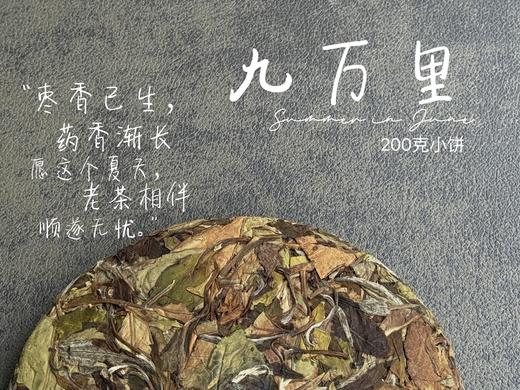 九万里
Summer in June
200克小饼
“枣香已生，
药香渐长
愿这个夏天，
老茶相伴
顺遂无忧。”